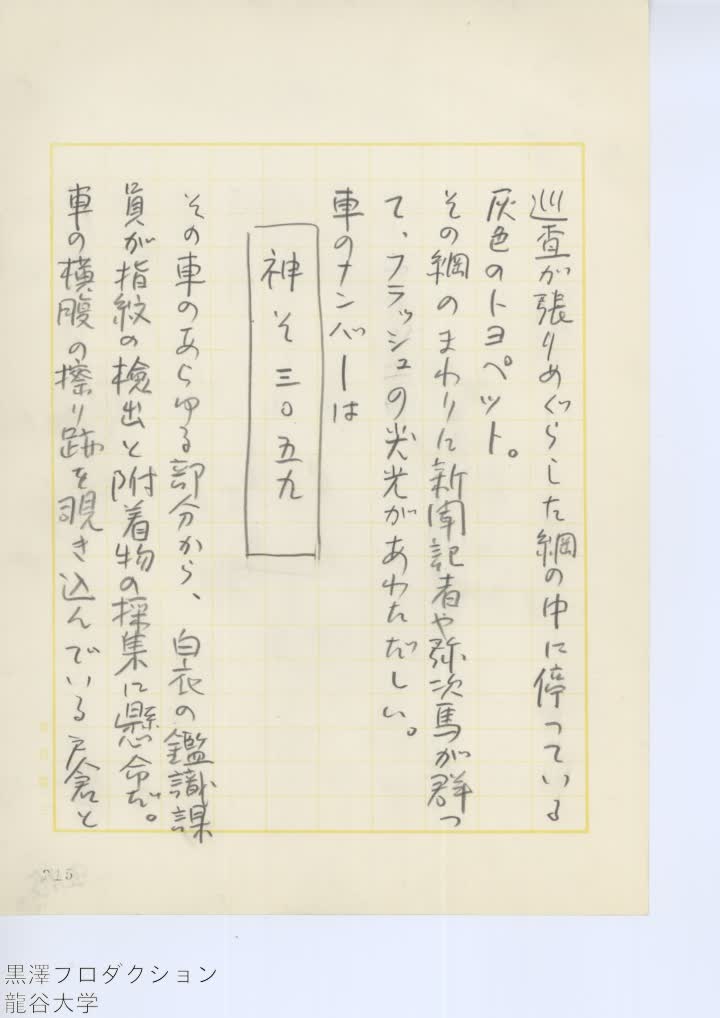 巡査が張りめぐらした綱の中に停っている
灰色のトヨペット。
その綱のまわりに新聞記者や弥次馬が群っ
て、フラッシュの光があわただしい。
車のナンバーは
神そ三〇五九
その車のあらゆる部分から、白衣の鑑識課
員が指紋の検出と附着物の採集に懸命だ。
車の横腹の擦り跡を覗き込んでいる戸倉と
215
黒澤プロダクション
龍谷大学